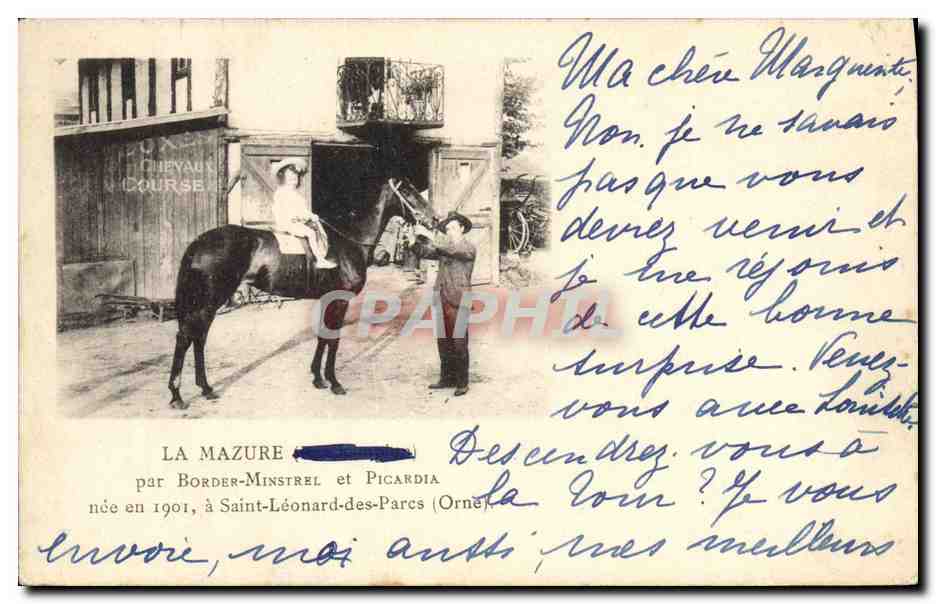 BOX
CHEVAUX
COURSE
CPAPHIL
Ma chère Marguerite,
Non, je ne savais
pas que vous
devrez venir et
je me réjouis
de cette bonne
surprise. Venez-
vous avec
Descendrez-vous à
la Tour? Je vous
envoie, moi aussi, mes meilleurs
LA MAZURE
par BORDER-MINSTREL et PICARDIA
née en 1901, à Saint-Léonard-des-Parcs (Orne).